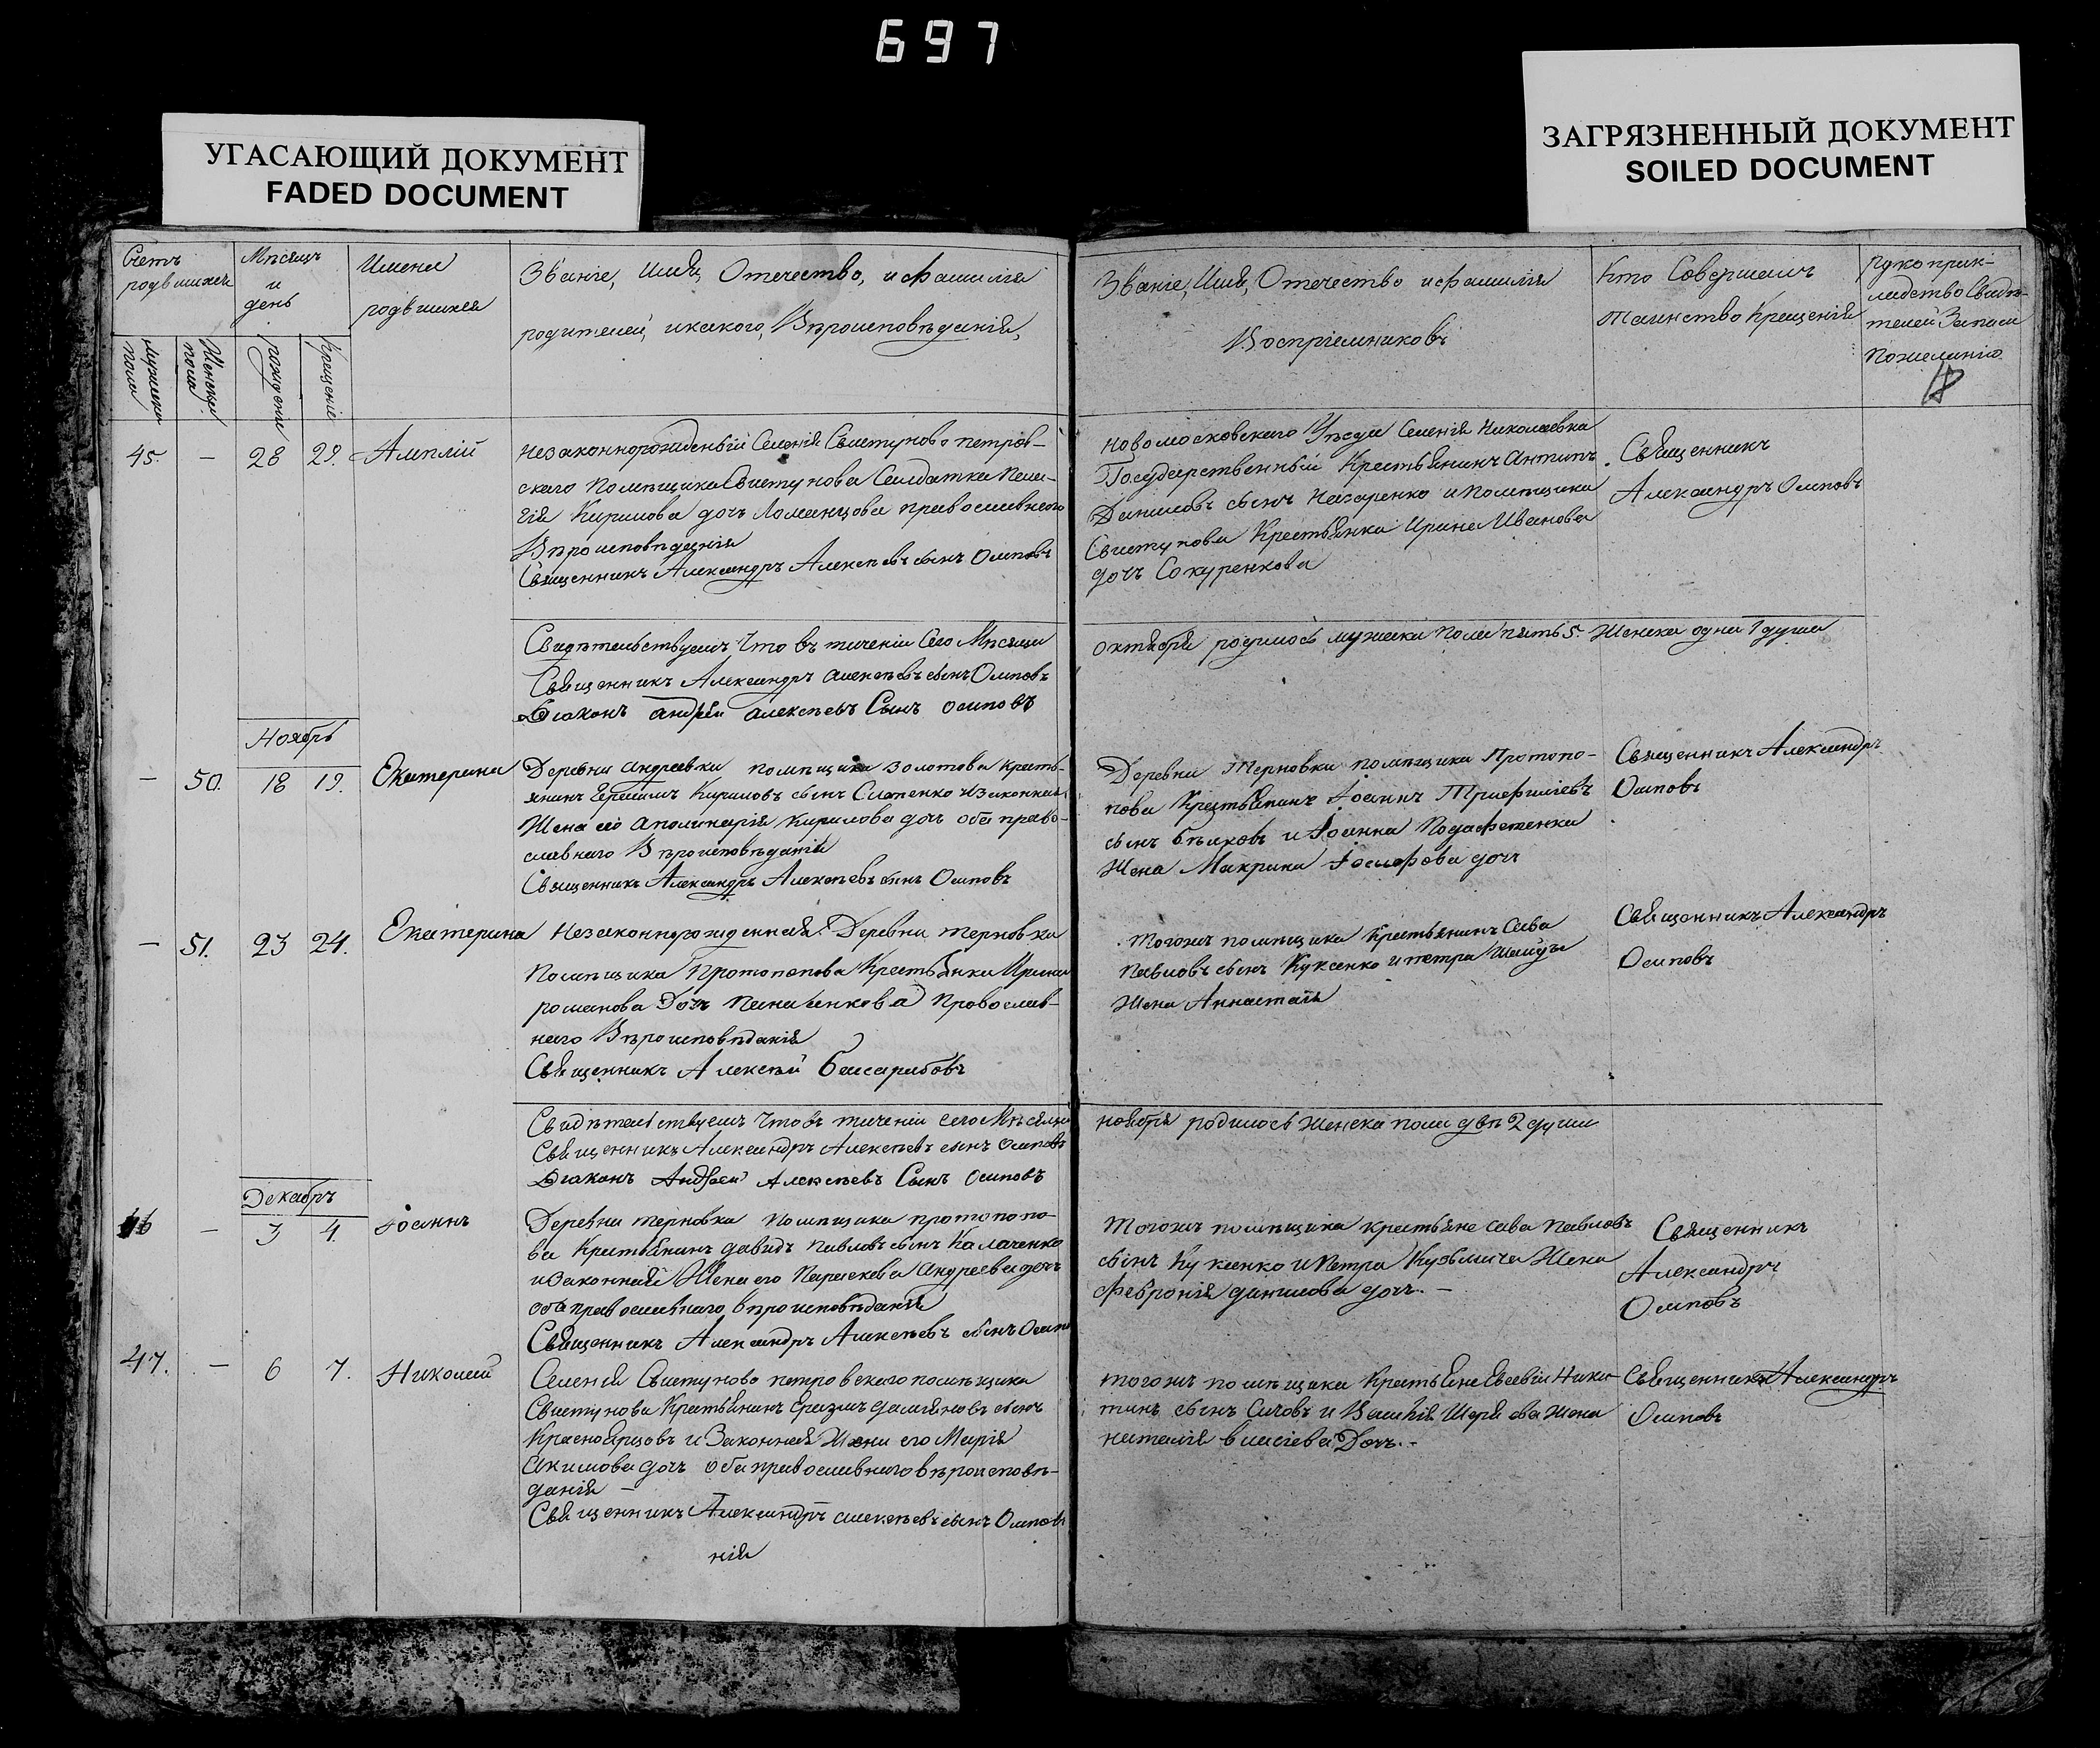 697
УГАСАЮЩИЙ ДОКУМЕНТ
FADED DOCUMENT
ЗАГРЯЗНЕННЫЙ ДОКУМЕНТ
SOILED DOCUMENT
Счетъ родившихся
Мѣсяцъ и день
Имена родившихся
Званіе, Имя, Отечество, и фамилія
родителей, и какого, Вѣроисповѣданія,
Мужеска пола
Женска пола
рожденія
крещенія
Званіе, Имя, Отечество и фамилія
Воспріемниковъ
Кто Совершалъ
Таинство Крещенія
Рукоприк-
ладство Свидѣ-
телей Записи
по желанію
45. — 28 29. Амплій
незаконнорожденый Селенія Свистуново петров-
скаго помѣщика Свистунова Салдатка Пела-
гія Кирилова дочь Ломанцова православнаго
Вѣроисповѣданія
Священникъ Александръ Алексѣевъ сынъ Осиповъ
новомосковскаго Уѣзда Селенія Николаевка
Государственный Крестьянинъ Антипъ
Даниловъ сынъ Назаренко и помѣщика
Свистунова Крестьянка Ирина Иванова
дочь Сокуренкова
Священникъ
Александръ Осиповъ
Свидѣтельствуемъ Что въ теченіи Сего Мѣсяца
октября родилось мужеска пола пять 5. Женска одна 1 душа
Священникъ Александръ алексѣевъ сынъ Осиповъ
Діаконъ андрей алексѣевъ Сынъ осиповъ
Ноябрь
— 50. 18 19. Екатерина
Деревни андреевки помѣщика золотова кресть-
янинъ Герасимъ Кириловъ сынъ и законная
Жена его аполинарія кирилова дочь оба право-
славнаго Вѣроисповѣданія
Священникъ Александръ Алексѣевъ сынъ Осиповъ
Деревни Терновки помѣщика Протопо-
пова Крестьянинъ Іоаннъ Трифиліевъ
сынъ бѣлковъ и Іоанна
Жена Макрина Іосифова дочь
Священникъ Александръ
Осиповъ
— 51. 23 24. Екатерина
Незаконнорожденная. Деревни терновки
Помѣщика Протопопова Крестьянки Ирины
романова Дочь Панасенкова Православ-
наго Вѣроисповѣданія
Священникъ Алексѣй Бассарабовъ
Тогожъ помѣщика крестьянинъ Сава
Павловъ сынъ Куксенко и петра
Жена Аннастасія
Священникъ Александръ
Осиповъ
Свидѣтельствуемъ Что въ теченіи сего Мѣсяца
ноября родилось Женска пола двѣ 2 души
Священникъ Александръ Алексѣевъ сынъ осиповъ
Діаконъ Андрей Алексѣевъ Сынъ Осиповъ
Декабрь
46 — 3 4. Іоаннъ
Деревни терновка помѣщика протопопо-
ва Крестьянинъ давидъ павловъ сынъ Калаченко
и законная Жена его Параскева Андреева дочь
оба православнаго вѣроисповѣданія
Священникъ Александръ Алексѣевъ сынъ Осипо
Тогожъ помѣщика крестьяне сава павловъ
сынъ Куксенко и Петра Кузьмича Жена
Феуронія данилова дочь. —
Священникъ
Александръ
Осиповъ
47. — 6 7. Николай
Селенія Свистуново петровскаго помѣщика
Свистунова Крестьянинъ Еразмъ даміяновъ сынъ
Красноярцовъ и Законная Жена его Марія
акимова дочь оба православнаго вѣроисповѣ-
данія —
Священникъ Александръ алексѣевъ сынъ Осиповъ
нія
тогожъ помѣщика Крестьяне Евсевій Ники-
тинъ сынъ Сичовъ и Василія Жена
наталія власіева Дочь. -
Священникъ Александръ
Осиповъ